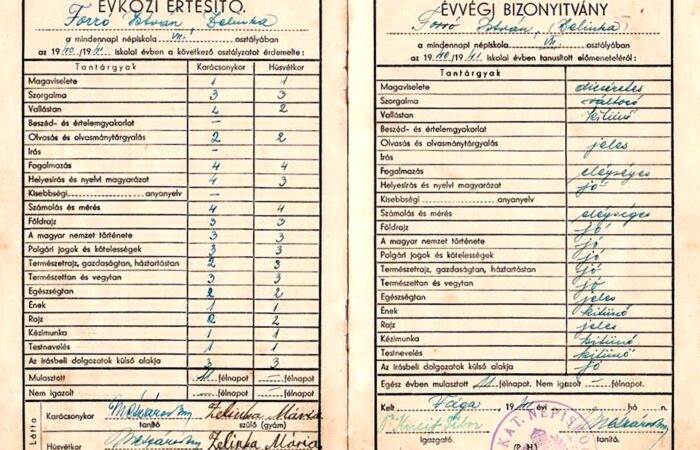 ÉVKÖZI ÉRTESÍTŐ.
Forró István, Zelinka
a mindennapi népiskola VII. osztályában
az 19 40/19 41. iskolai évben a következő osztályzatot érdemelte:
Tantárgyak Karácsonykor Húsvétkor
Magaviselete 1 1
Szorgalma 3 3
Vallástan 2
Beszéd- és értelemgyakorlat —
Olvasás és olvasmánytárgyalás 2 2
Irás —
Fogalmazás 4 4
Helyesírás és nyelvi magyarázat 4 3
Kisebbségi anyanyelv —
Számolás és mérés 4 4
Földrajz 3 3
A magyar nemzet története 3 3
Polgári jogok és kötelességek 3 3
Természetrajz, gazdaságtan, háztartástan 2 3
Természettan és vegytan 3 3
Egészségtan 2 2
Ének 1 1
Rajz 2 2
Kézimunka 1 1
Testnevelés 1 1
Az írásbeli dolgozatok külső alakja 3 3
Mulasztott félnapot — félnapot
Nem igazolt — félnapot — félnapot
Látta
Karácsonykor Zelinka Mária
tanító szülő (gyám)
Húsvétkor Zelinka Mária
ÉVVÉGI BIZONYITVÁNY
Forró István, (Zelinka)
a mindennapi népiskola VII. osztályában
az 19 40/19 41. iskolai évben tanusított előmeneteléről:
Tantárgyak
Magaviselete dicséretes
Szorgalma változó
Vallástan kitünő
Beszéd- és értelemgyakorlat
Olvasás és olvasmánytárgyalás jeles
Irás
Fogalmazás elégséges
Helyesírás és nyelvi magyarázat jó
Kisebbségi anyanyelv
Számolás és mérés elégséges
Földrajz jó
A magyar nemzet története jó
Polgári jogok és kötelességek jó
Természetrajz, gazdaságtan, háztartástan jó
Természettan és vegytan jó
Egészségtan jeles
Ének kitünő
Rajz jeles
Kézimunka kitünő
Testnevelés kitünő
Az írásbeli dolgozatok külső alakja jó
Egész évben mulasztott félnapot. Nem igazolt — félnapot.
Kelt Vága, 19 évi hó n.
igazgató. (P. H.) tanító.
KAT. NÉPISKO